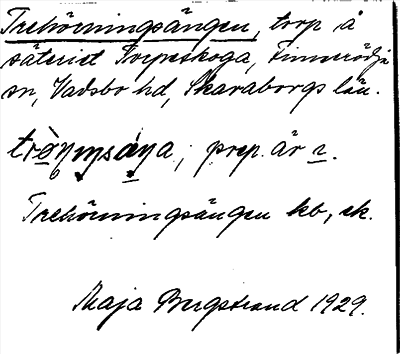 Trehörningsängen, torp å
säteriet Porpeskoga, Finnerödja
sn, Vadsbo hd, Skaraborgs län.
prep. är
Trehörningsängen kb, ek.
Maja Bergstrand 1929.